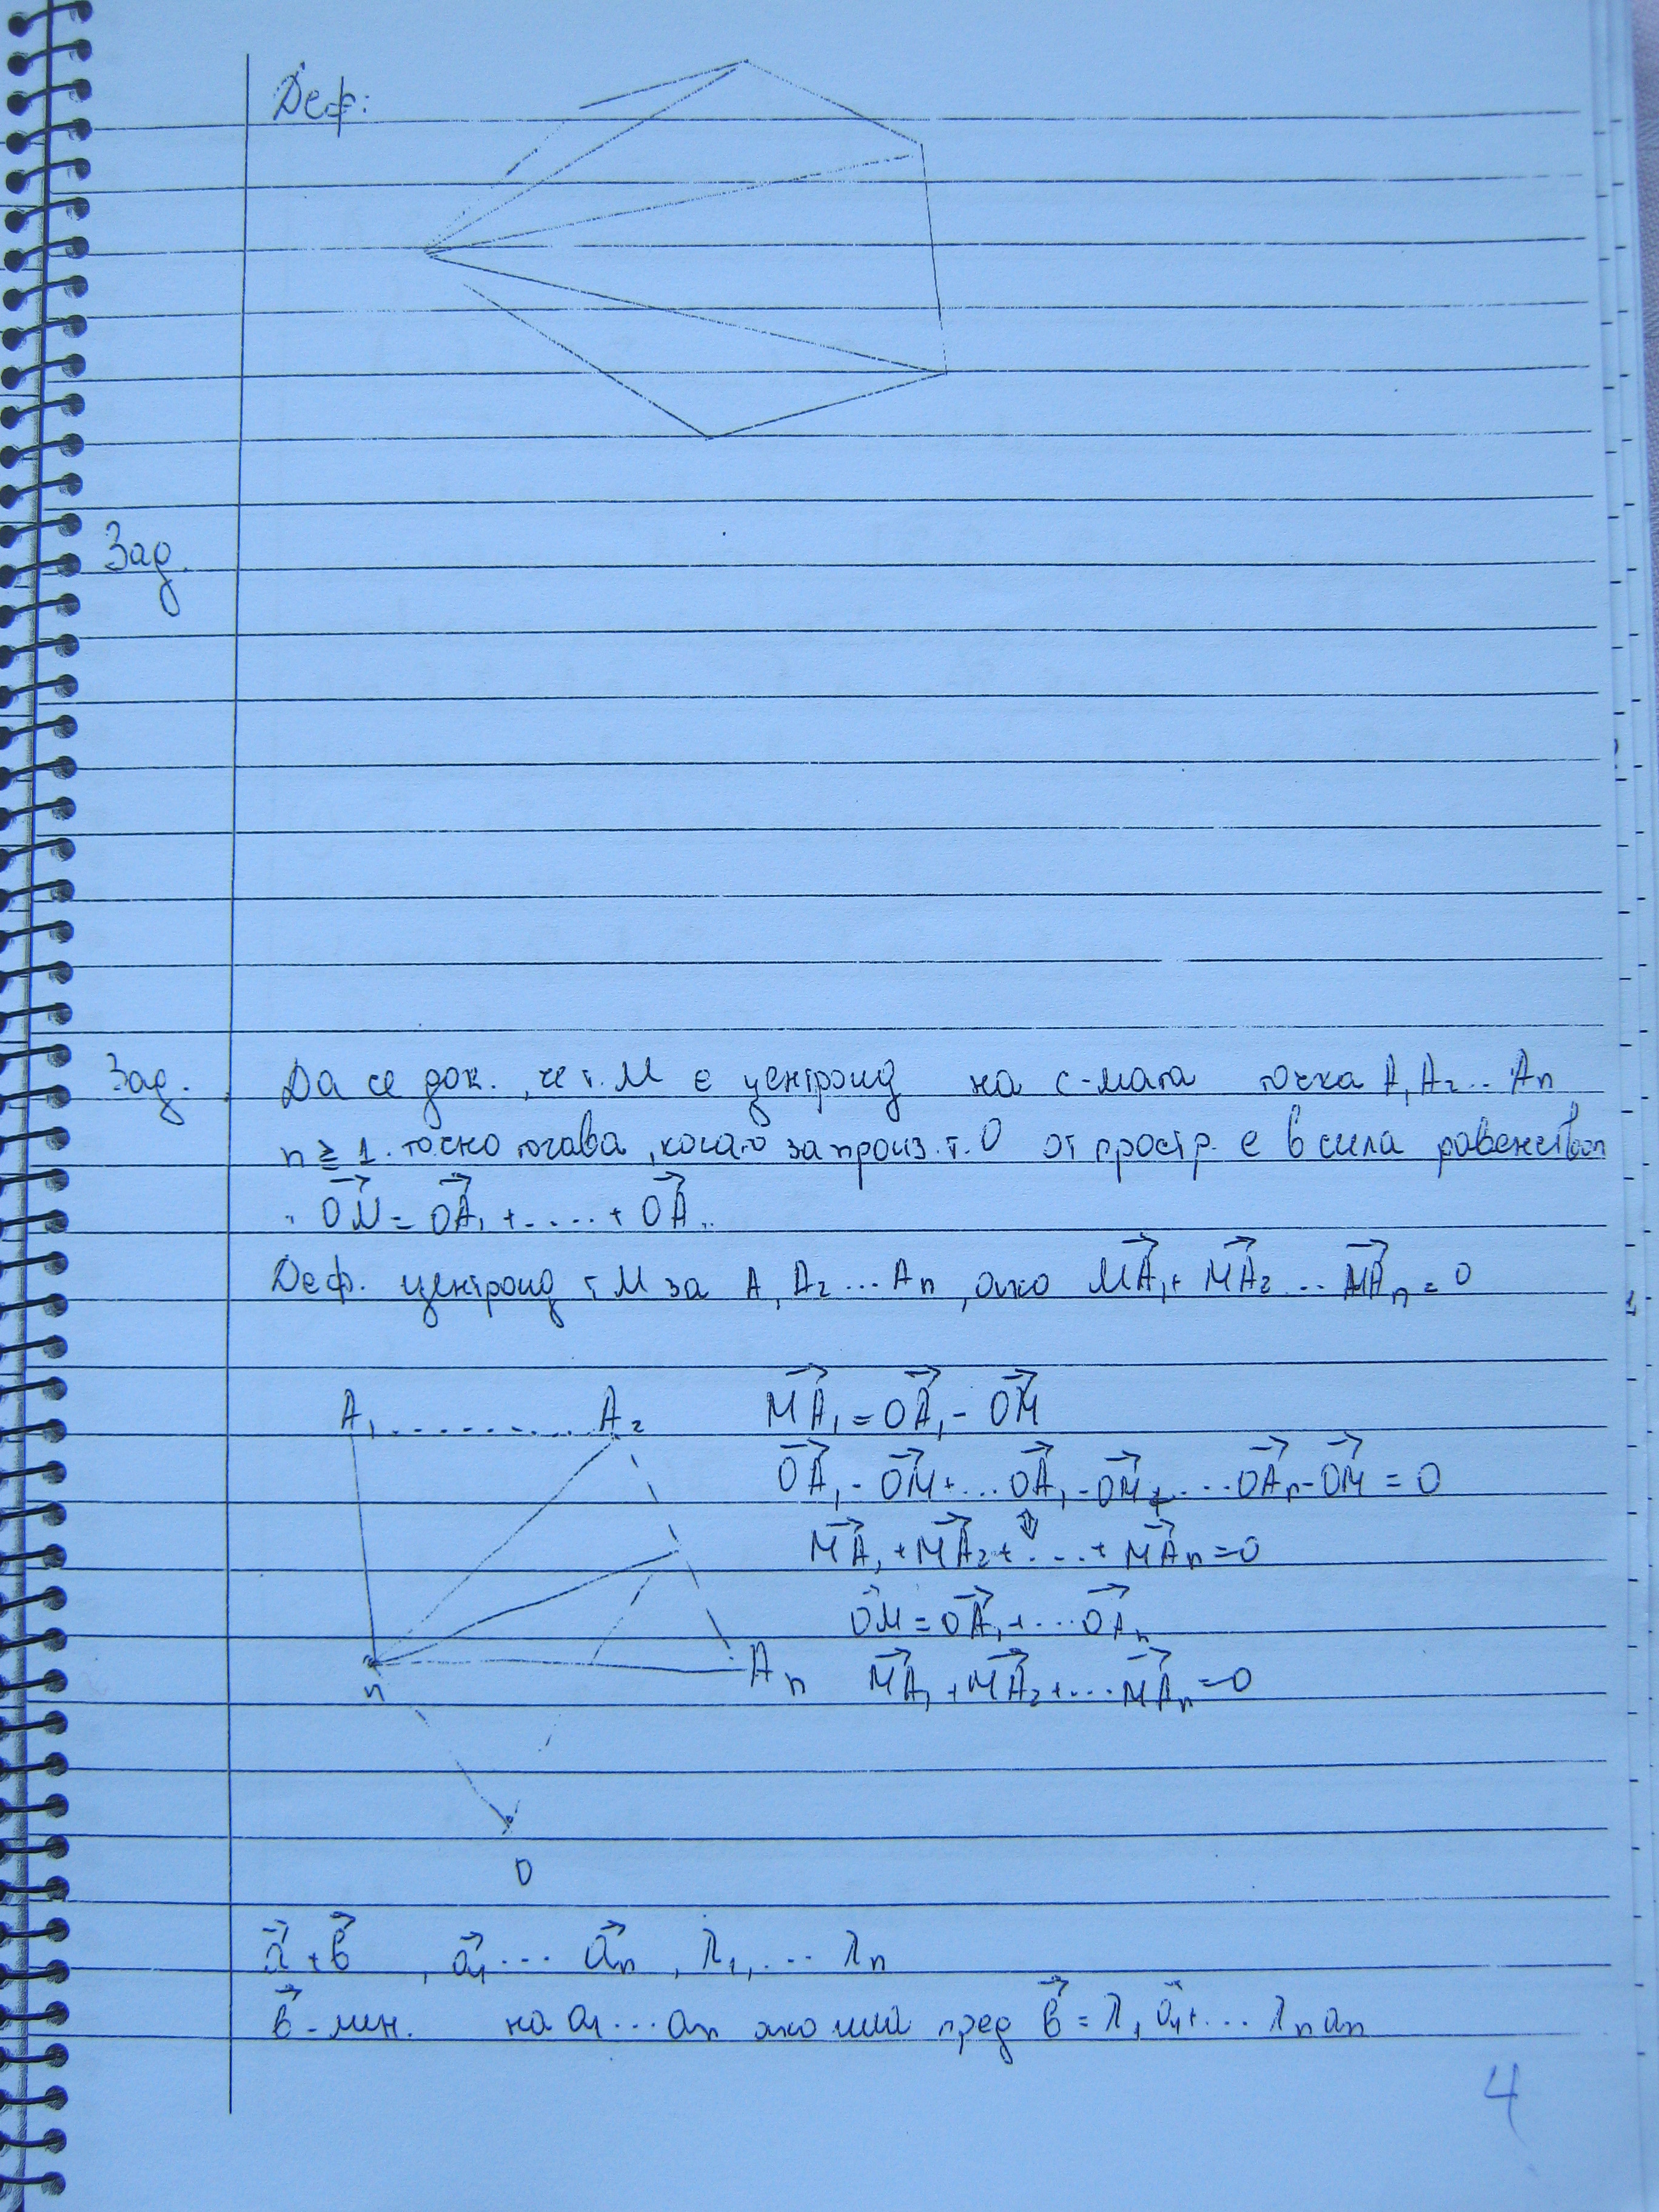 Деф:
Зад.
Зад. Да се док., че т. М е центроид на с-мата точка A₁A₂...An
n ≥ 1. точно тогава, когато за произ. т. О от простр. е в сила равенствот
OM⃗ = OA⃗₁ + ..... + OA⃗..
Деф. центроид т М за A₁A₂...An, ако MA⃗₁ + MA⃗₂ ... MA⃗n = 0
A₁..........A₂
MA⃗₁ = OA⃗₁ - OM⃗
OA⃗₁ - OM⃗ + ... OA⃗₁ - OM⃗ + .... OA⃗n - OM⃗ = 0
⇕
MA⃗₁ + MA⃗₂ + .... + MA⃗n = 0
OM⃗ = OA⃗₁ + ... OA⃗n
An
MA⃗₁ + MA⃗₂ + ... MA⃗n = 0
O
a⃗ + b⃗ , a⃗₁ ... a⃗n , λ₁, ... λn
b⃗ - лин. на a₁ ... an ако има пред b⃗ = λ₁a⃗₁ + ... λnan
4